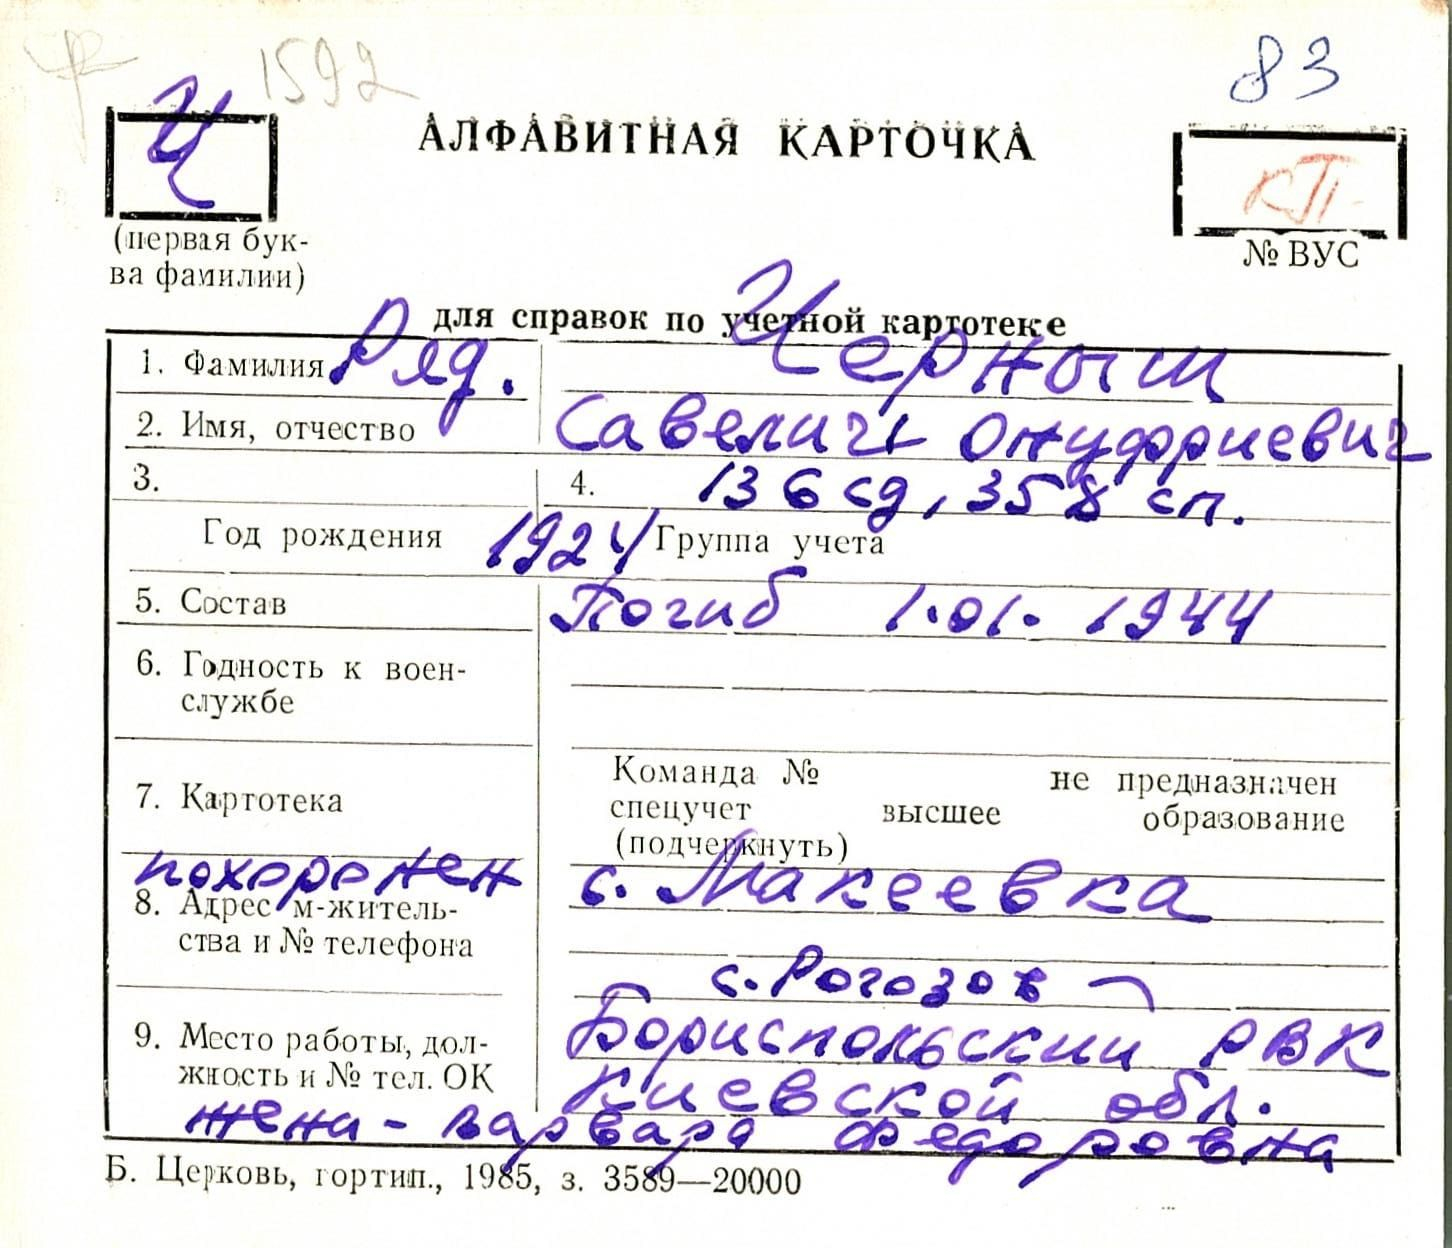 1592
83
Ч
АЛФАВИТНАЯ КАРТОЧКА
КП
(первая бук-
ва фамилии)
№ ВУС
для справок по учетной картотеке
1. Фамилия Ряд. Черныш
2. Имя, отчество Савелич Онуфриевич
3. 4. 136 сд, 358 сп.
Год рождения 1924 Группа учета
5. Состав Погиб 1.01.1944
6. Годность к воен-
службе
7. Картотека
Команда № не предназначен
спецучет высшее образование
(подчеркнуть)
похоронен с. Макеевка
8. Адрес м-житель-
ства и № телефона
с. Рогозов
9. Место работы, дол-
жность и № тел. ОК
Бориспольский РВК
Киевской обл.
жена - Варвара Федоровна
Б. Церковь, гортип., 1985, з. 3589—20000